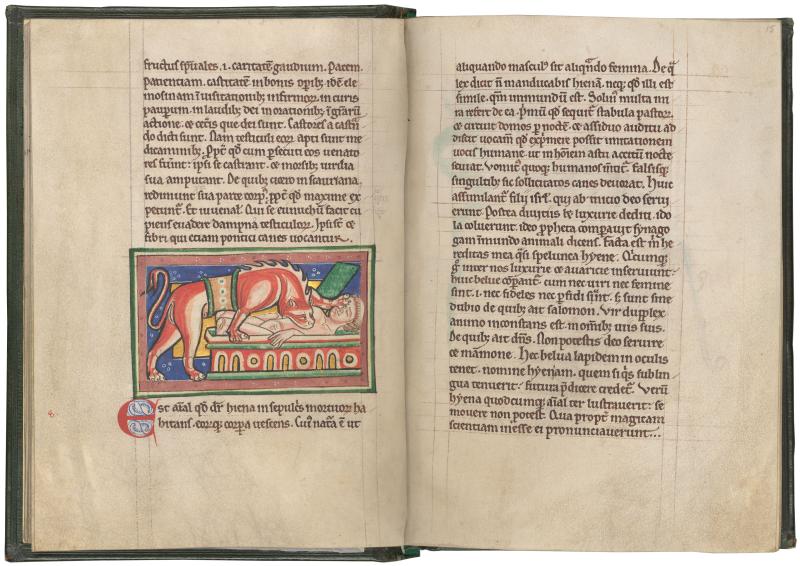 fructus sp̄tales .i. caritatē gaudium. Pacem.
patientiam. castitatē in bonis op̄ib; idē ele
mosinam ī uisitationib; infirmoꝝ. in curis
pauperum. in laudib; dei in orationib;
actione. ce cet̄is que dei sunt. Castores a cast̄n
do dicti sunt. Nam testiculi eoꝝ apti sunt me
dicaminib; ꝓpt̄ qd̄ cum persecuti eos uenato
res fiunt: ip̄si se castrant. ce morsib; uiridia
sua amputant. De quib; cicero in scauriana.
redimunt sua parte corp̄. ꝓpt̄ qd̄ maxime ex
petunt̄. Et iuuenal̄. Qui se eunuchū facit cu
piens euadere dampnā testiculoꝝ. Ip̄i st̄ ce
fibri qui etiam pontici canes uocantur.
Est aīal qd̄ dr̄ hiena in sepulcs̄ mortuoꝝ ha
bitans. eorꝙ; corpa uescens. Cui⁹ nat̄a ē ut
15
aliquando masculꝰ sit aliqn̄do femina. De q̄
lex dicit n̄ manducabis hienā. neq; qd̄ illi est
simile. qm̄ inmundū est. Solin⁹ multa mi
ra refert de ea. P̄mū qd̄ sequit̄ stabula pastoꝝ.
ce circuit domos p̄ noctē. ce assiduo auditu ad
discit uocam̄ qd̄ exp̄mere possit imitationem
uocis humane. ut in hōiem astu accitū nocte
seuiat. Vomit⁹ quoq; humanos m̄tit̄. falsisq;
singultib; sic sollicitatos canes deuorat. Huic
assimulant̄ filii isrl̄. qui ab inicio deo serui
erunt. Postea diuiciis ⁊ luxurie dediti. ido
la coluerunt. ideo ꝓpheta comparauit synago
gam īmundo animali dicens. Facta est m̄ he
reditas mea q̄si spelunca hyene. Qicumq;
g̊ inter nos luxurie ce auaricie inseruiunt
huic belue cōparant̄. cum nec uiri nec femine
sint. i. nec fideles nec ꝑfidi sūt. s; sunt sine
dubio de quib; ait salomon. Vir dupplex
animo inconstans est. in omīb; uiis suis.
De quib; ait dn̄s. Non potestis deo seruire
ce mamone. Hec belua lapidem in oculis
tenet. nomine hyeniam. quem si q̄s sub lin
gua tenuerit. futura p̄dicere credet̄. Verū
hyena quodcumq; aīal ter lustrauerit: se
mouere non potest. Qua propt̄ magicam
scientiam inesse ei pronunciauerunt...